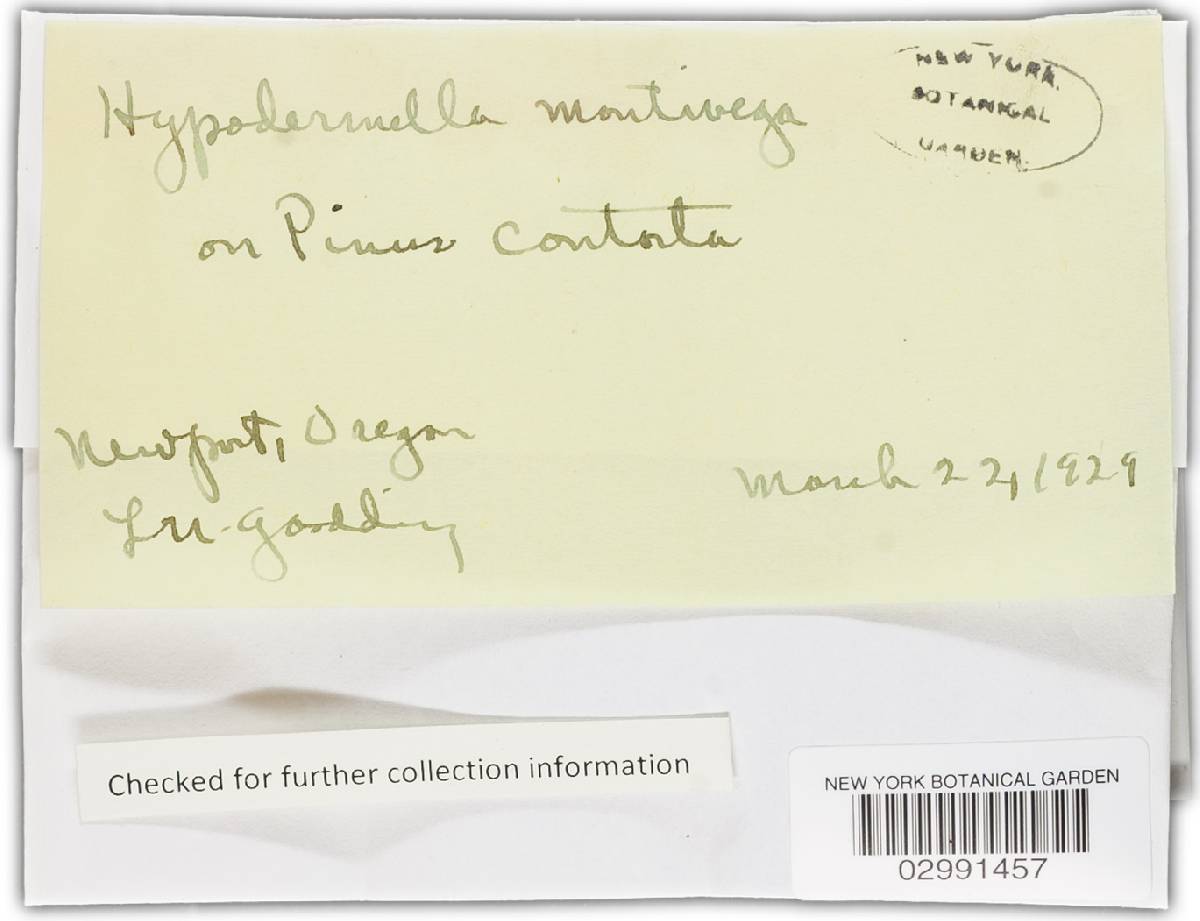 Hypodermella montivega
NEW YORK
BOTANICAL
GARDEN
on Pinus contorta
Newport, Oregon
March 22, 1929
L N. Goodding
Checked for further collection information
NEW YORK BOTANICAL GARDEN
02991457